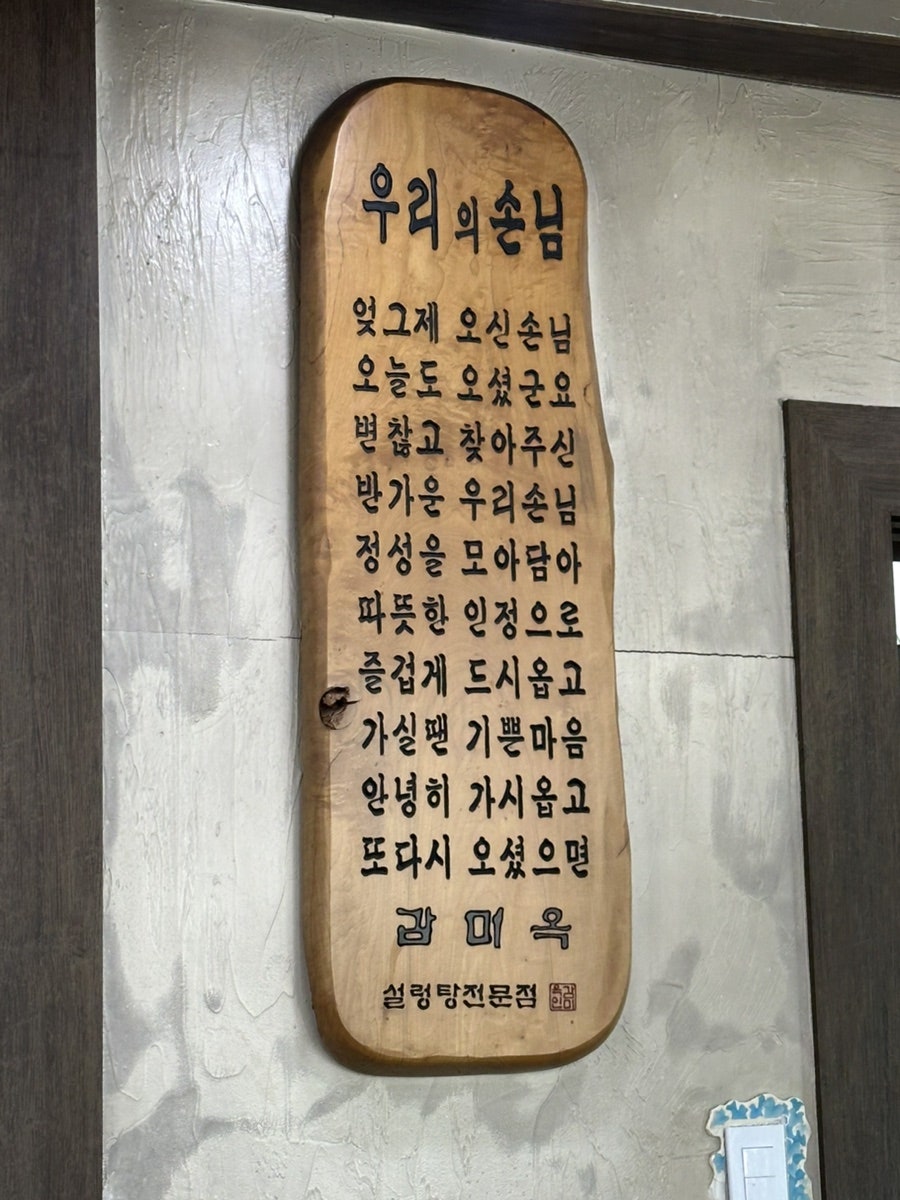 우리의손님
엊그제 오신손님
오늘도 오셨군요
변찮고 찾아주신
반가운 우리손님
정성을 모아담아
따뜻한 인정으로
즐겁게 드시옵고
가실땐 기쁜마음
안녕히 가시옵고
또다시 오셨으면
감미옥
설렁탕전문점